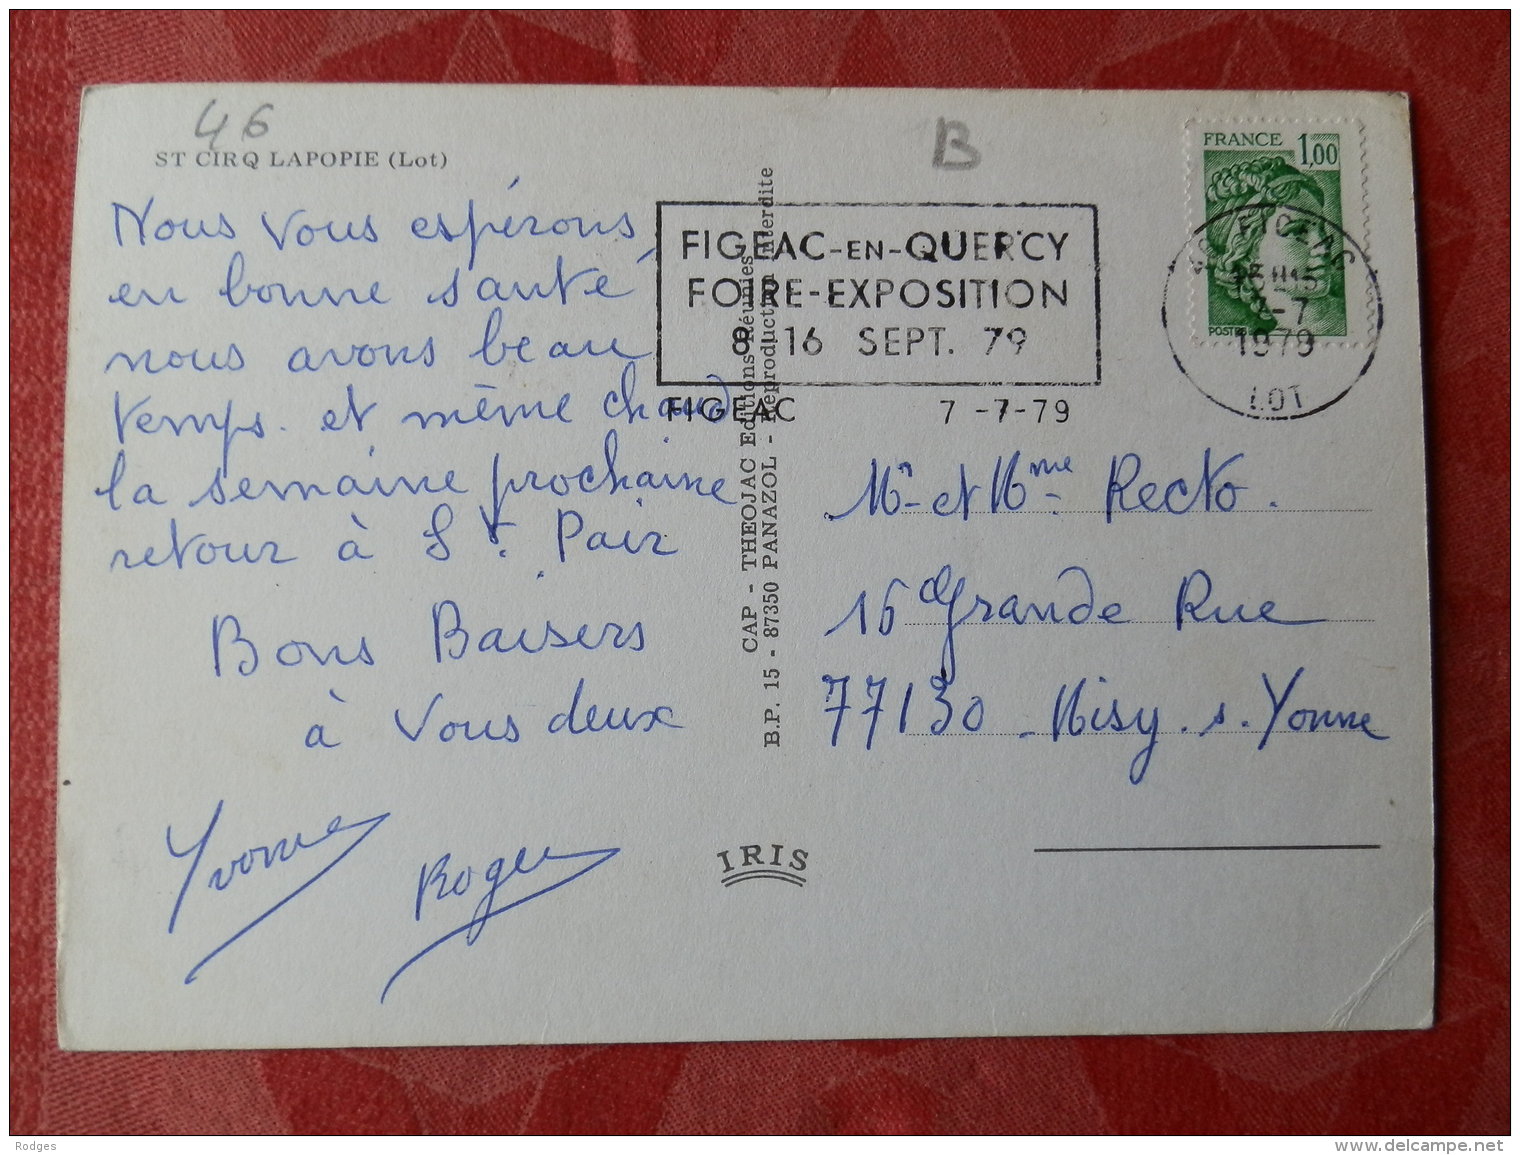 46
ST CIRQ LAPOPIE (Lot)
B
Nous vous espérons,
en bonne santé
nous avons beau
temps. et même chaud
la semaine prochaine
retour à St. Pair
Bons Baisers
à vous deux
Yvonne
Roger
CAP - THEOJAC Editions Réunies
B.P. 15 - 87350 PANAZOL - Reproduction Interdite
IRIS
FIGEAC-EN-QUERCY
FOIRE-EXPOSITION
8 16 SEPT. 79
FIGEAC 7-7-79
FRANCE 1,00
POSTES
46 FIGEAC
7-7
1979
LOT
Mr et Mme Recto.
16 Grande Rue
77130 - Misy. s. Yonne
Rodges
www.delcampe.net